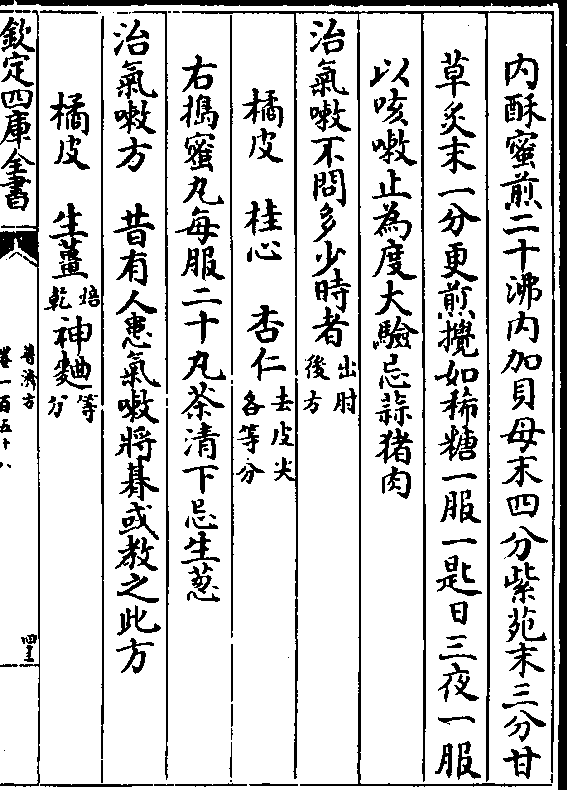 内酥蜜煎二十沸内加貝母末四分紫苑末三分甘
草炙末一分更煎攪如稀糖一服一匙日三夜一服
以咳嗽止為度大驗忌蒜猪肉
治氣嗽不問多少時者出肘後方
橘皮 桂心 杏仁去皮尖各等分
右搗蜜丸每服二十丸茶清下忌生葱
治氣嗽方 昔有人患氣嗽將朞或教之此方
橘皮 生薑焙乾 神麯等分
欽定四庫全書
普濟方
卷一百五十八